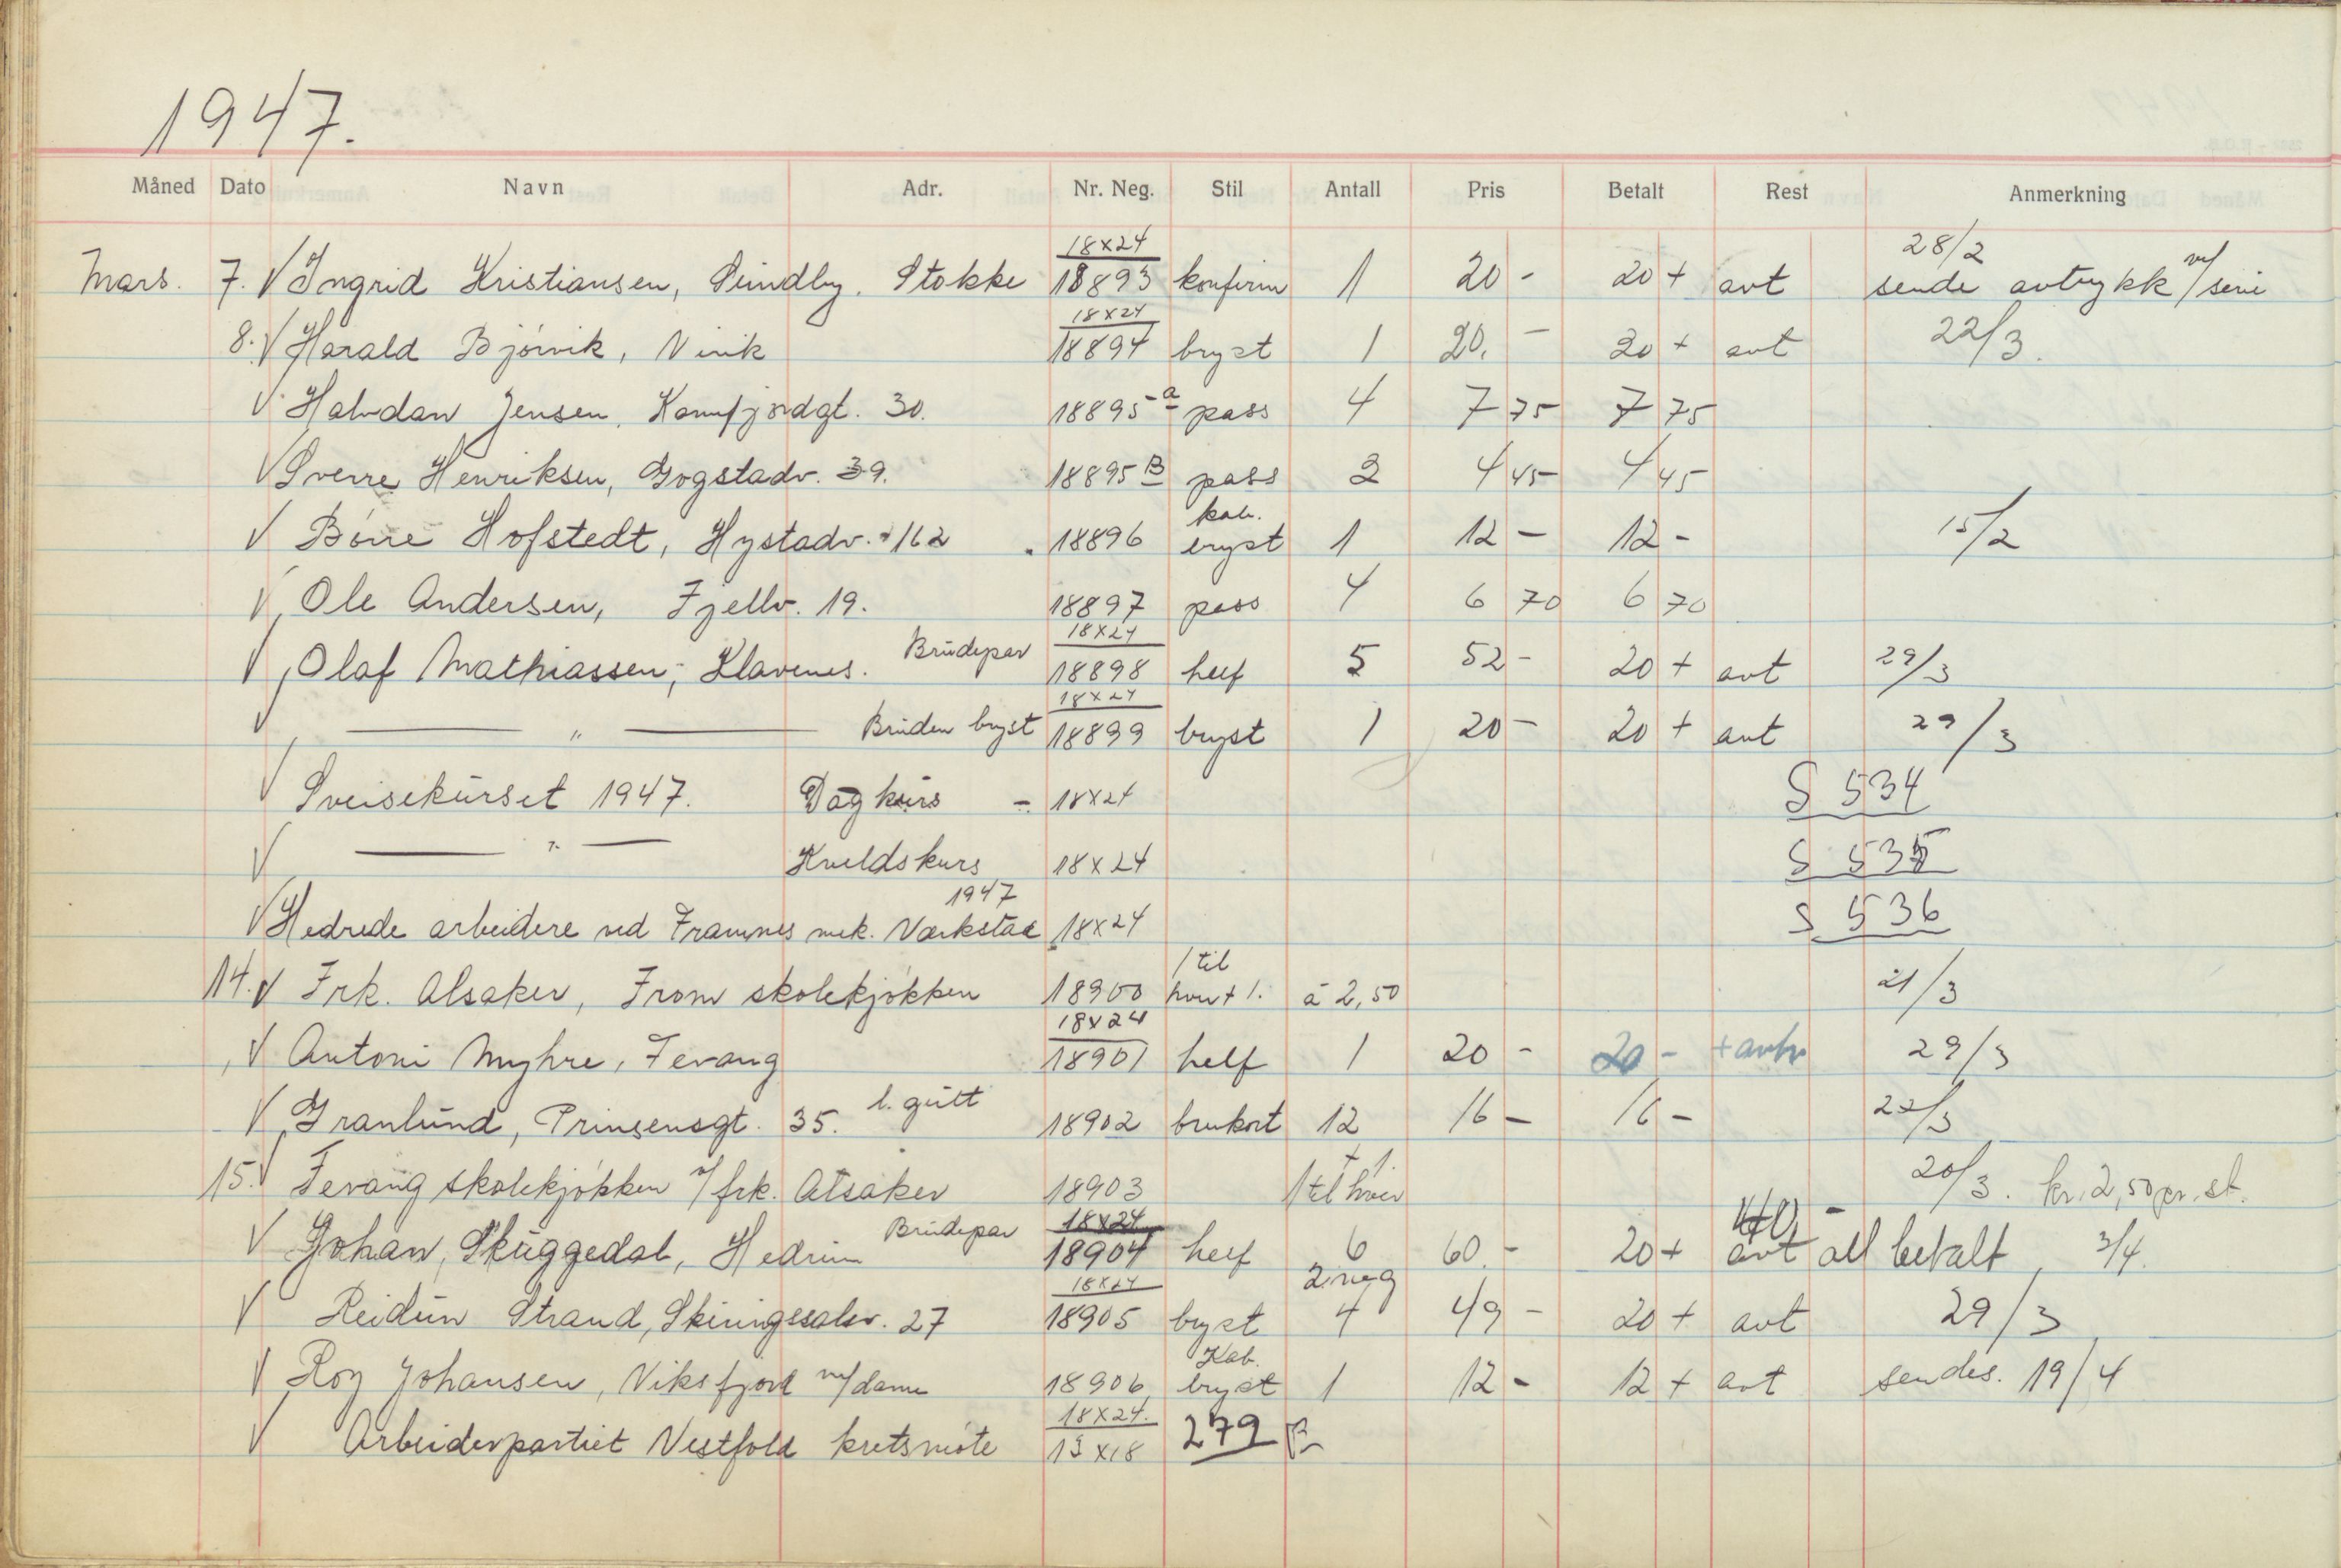 1947.
Måned Dato Navn Adr. Nr. Neg. Stil Antall Pris Betalt Rest Anmerkning
18x24 28/2
Mars. 7. V Ingrid Kristiansen, Sundby. Stokke 18893 konfirm 1 20 - 20 + avt sende avtrykk m/ serie
18x24
8. V Harald Bjørvik, Virik 18894 bryst 1 20. - 20 + avt 22/3.
V Halvdan Jensen, Kamfjordgt. 30. 18895 a pass 4 7 75 7 75
V Sverre Henriksen, Gogstadv. 39. 18895 B pass 2 4 45 4 45
kab.
V Börre Hofstedt, Hystadv. 162 18896 bryst 1 12 - 12 - 15/2
V Ole Andersen, Fjellv. 19. 18897 pass 4 6 70 6 70
18x24
V Olaf Mathiassen, Klavenes. Brudepar 18898 helf 5 52 - 20 + avt 29/3
18x24
V — " — Bruden bryst 18899 bryst 1 20 - 20 + avt 29/3
V Sveisekurset 1947. Dagkurs - 18x24 S 534
V — " — Kveldskurs 18x24 S 535
1947
V Hedrede arbeidere ved Framnes mek. Værkstad 18x24 S 536
1 til
14. V Frk. Alsaker, Fram skolekjøkken 18900 hver + 1. á 2,50 21/3
18x24
V Antoni Myhre, Fevang 18901 helf 1 20 - 20 - + avtr 29/3
V Granlund, Prinsensgt. 35. l. gutt 18902 brukort 12 16 - 16 - 22/3
+ 1.
15. V Fevang skolekjøkken v/ frk. Alsaker 18903 1 til hver 20/3. kr. 2,50 pr. st.
18x24 40 -
V Johan Skuggedal, Hedrum Brudepar 18904 helf 6 60. - 20 + avt alt betalt 3/4.
18x24 2 neg
V Reidun Strand, Skiringssalsv. 27 18905 bryst 4 49 - 20 + avt 29/3
Kab.
V Roy Johansen, Viksfjord m/dame 18906 bryst 1 12 - 12 + avt sendes. 19/4
18x24.
V Arbeiderpartiet Vestfold kretsmøte 13x18 279 B